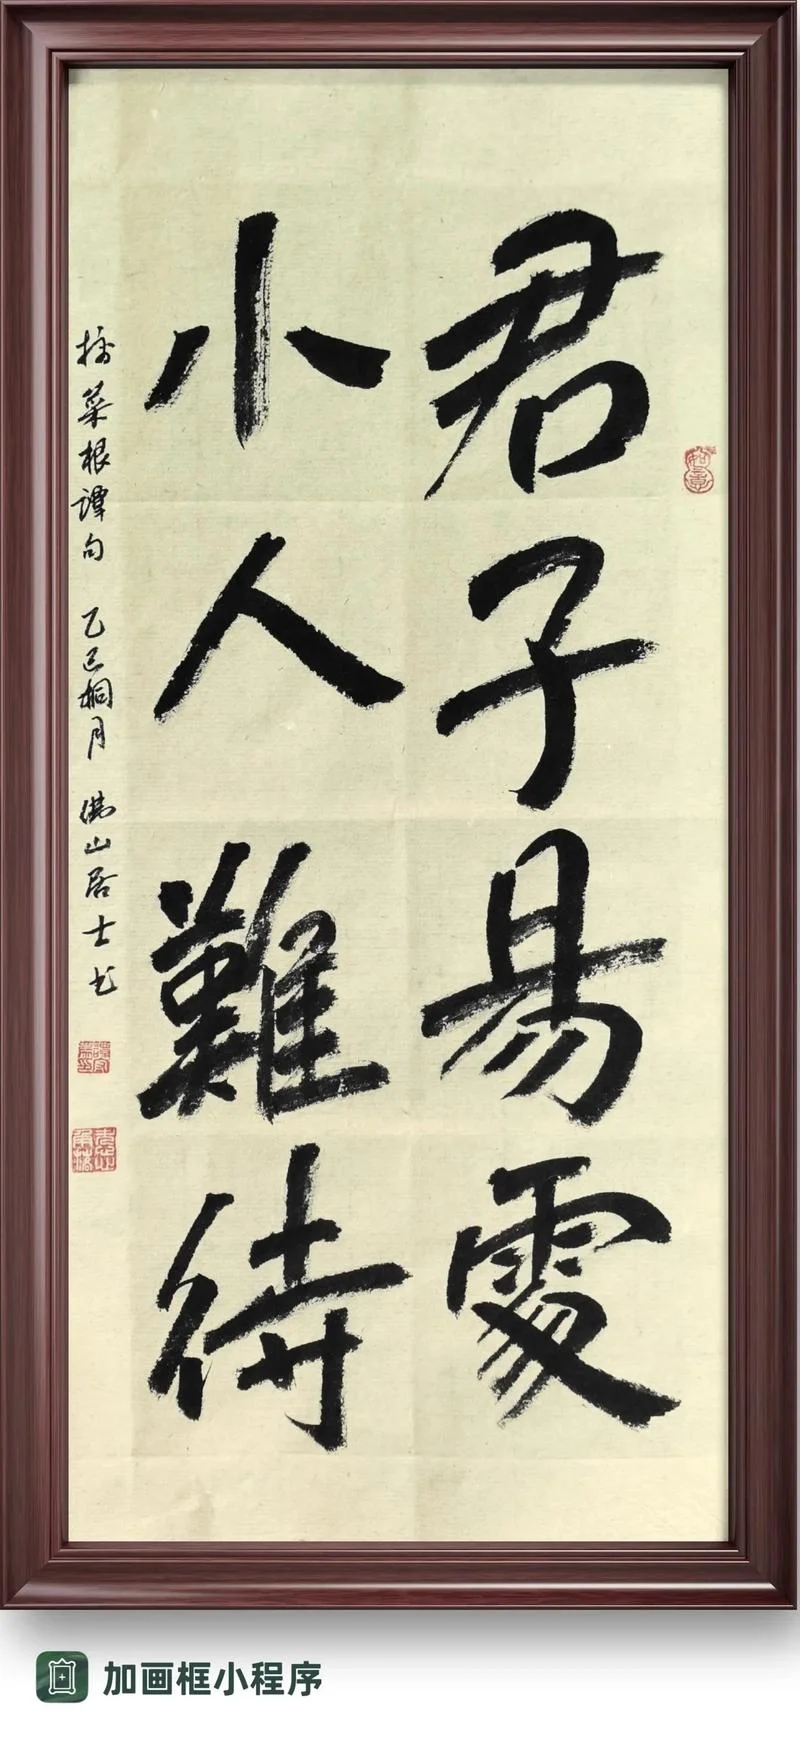 君子易處
小人難待
摘菜根譚句 乙巳桐月 佛山居士书
如意
加画框小程序